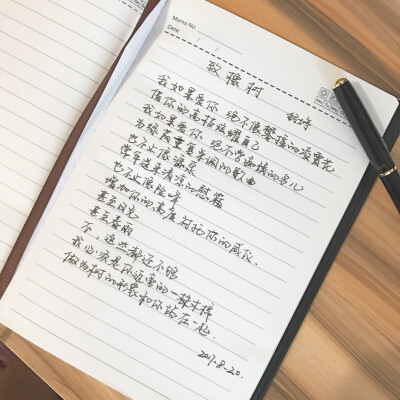 Memo No.
Date / /
致橡树
舒婷
我如果爱你 绝不像攀援的凌霄花
借你的高枝炫耀自己
我如果爱你 绝不学痴情的鸟儿
为绿荫重复单调的歌曲
也不止像源泉
常年送来清凉的慰藉
也不止像险峰
增加你的高度 衬托你的威仪.
甚至日光
甚至春雨
不,这些都还不够
我必须是你近旁的一株木棉
做为树的形象和你站在一起.
2017-8-20.